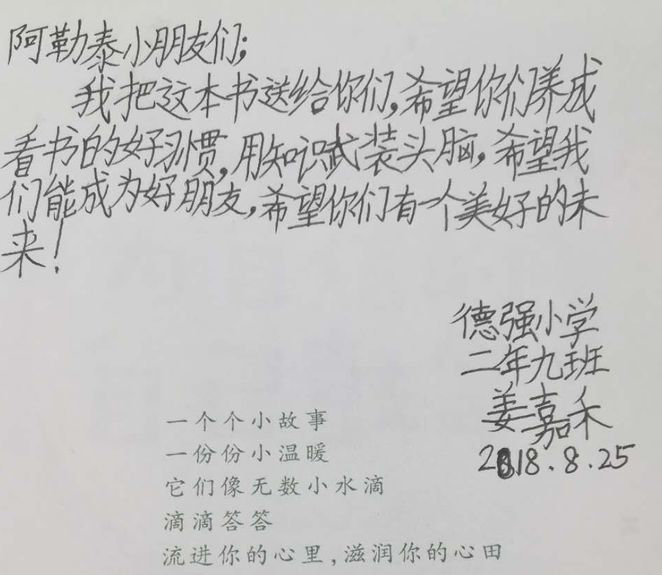 阿勒泰小朋友们;
我把这本书送给你们,希望你们养成
看书的好习惯,用知识武装头脑,希望我
们能成为好朋友,希望你们有一个美好的未
来!
德强小学
二年九班
姜嘉禾
2018.8.25
一个个小故事
一份份小温暖
它们像无数小水滴
滴滴答答
流进你的心里,滋润你的心田